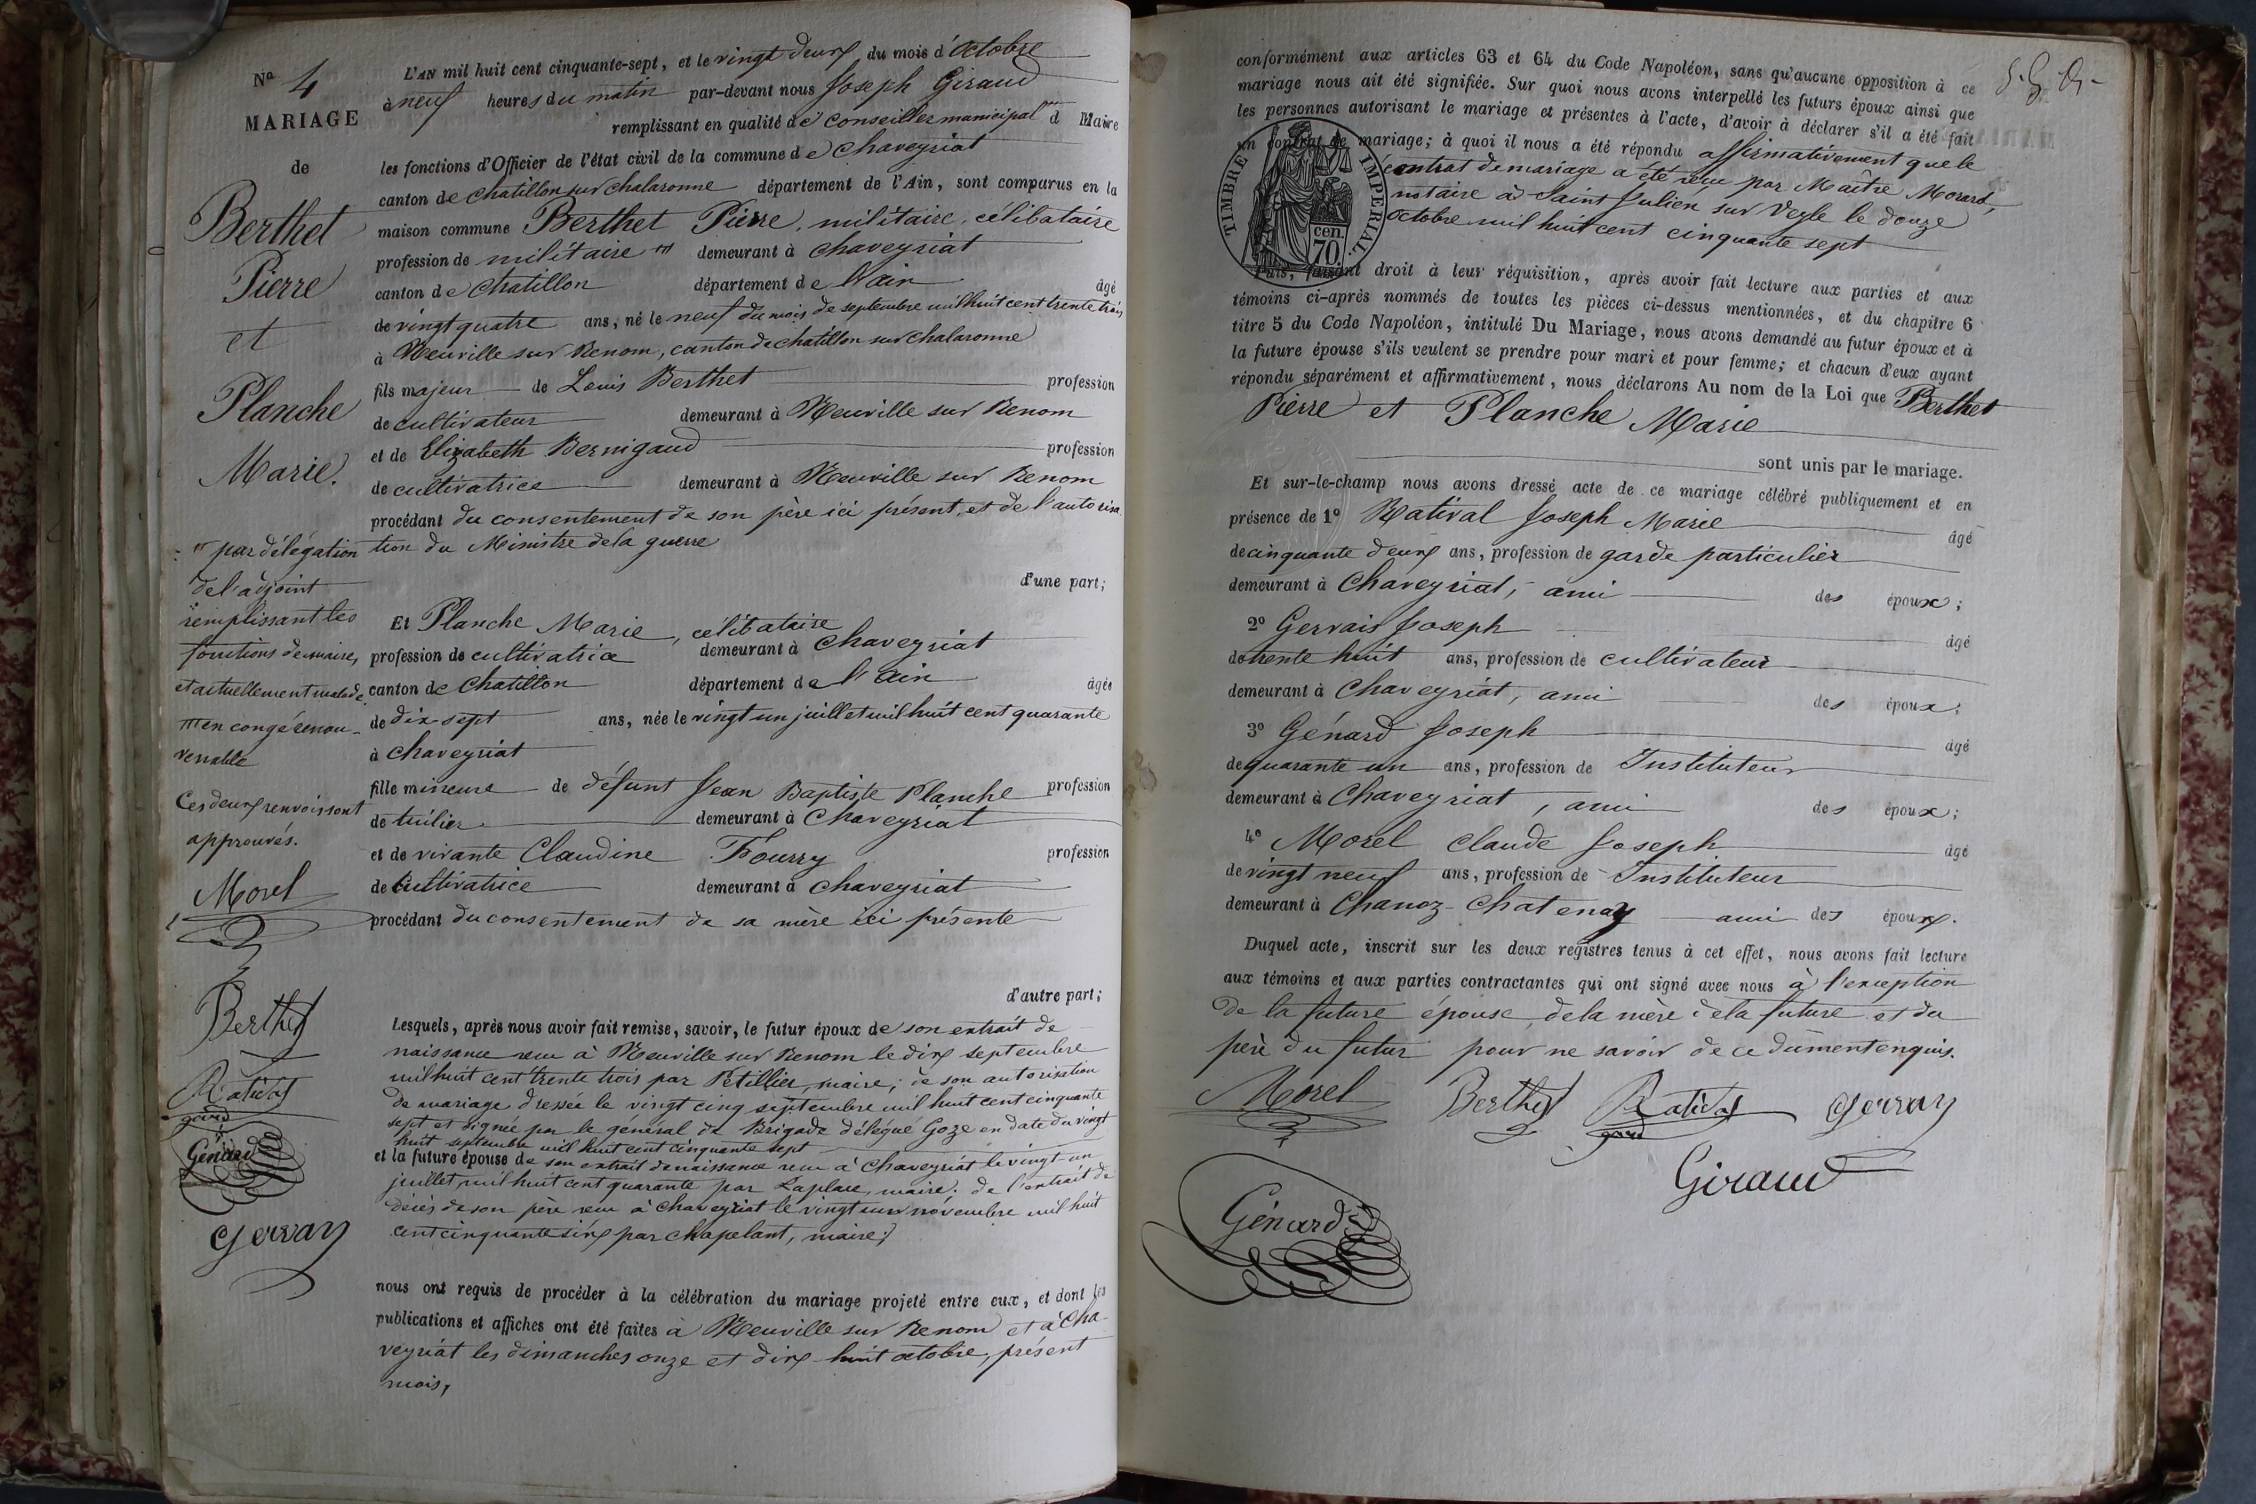 No 4
MARIAGE
de
Berthet
Pierre
et
Planche
Marie.
par délégation
de l'adjoint
remplissant les
fonctions de maire,
et actuellement malade.
en congé renou-
velable
Ces deux renvois sont
approuvés.
Morel
Berthet
Génard
Gervay
L'AN mil huit cent cinquante-sept, et le vingt deux du mois d'Octobre
à neuf heures du matin par-devant nous Joseph Giraud
remplissant en qualité de conseiller municipal d Maire
les fonctions d'Officier de l'état civil de la commune de Chaveyriat
canton de Chatillon sur Chalaronne département de l'Ain, sont comparus en la
maison commune Berthet Pierre, militaire, célibataire
profession de militaire demeurant à Chaveyriat
canton de Chatillon département de l'ain âgé
de vingt quatre ans, né le neuf du mois de septembre mil huit cent trente trois
à Neuville sur Renom, canton de Chatillon sur Chalaronne
fils majeur de Louis Berthet profession
de cultivateur demeurant à Neuville sur Renom
et de Elizabeth Bernigaud profession
de cultivatrice demeurant à Neuville sur Renom
procédant du consentement de son père ici présent, et de l'autorisa
tion du Ministre de la guerre
d'une part;
Et Planche Marie, célibataire
profession de cultivatrice demeurant à Chaveyriat
canton de Chatillon département de l'ain âgée
de dix sept ans, née le vingt un juillet mil huit cent quarante
à Chaveyriat
fille mineure de défunt Jean Baptiste Planche profession
de tuilier demeurant à Chaveyriat
et de vivante Claudine Fourry profession
de Cultivatrice demeurant à Chaveyriat
procédant du consentement de sa mère ici présente
d'autre part;
Lesquels, après nous avoir fait remise, savoir, le futur époux de son extrait de
naissance reçu à Neuville sur Renom le dix septembre
mil huit cent trente trois par Petillier, maire; de son autorisation
de mariage dressée le vingt cinq septembre mil huit cent cinquante
sept et signée par le général de Brigade délégué Goze en date du vingt
huit septembre mil huit cent cinquante sept
et la future épouse de son extrait de naissance reçu à Chaveyriat le vingt un
juillet mil huit cent quarante par Laplace, maire; de l'extrait de
décès de son père reçu à Chaveyriat le vingt novembre mil huit
cent cinquante six par Chapelant, maire;
nous ont requis de procéder à la célébration du mariage projeté entre eux, et dont les
publications et affiches ont été faites à Neuville sur Renom et à Cha-
veyriat les dimanches onze et dix huit octobre, présent
mois,
conformément aux articles 63 et 64 du Code Napoléon, sans qu'aucune opposition à ce
mariage nous ait été signifiée. Sur quoi nous avons interpellé les futurs époux ainsi que
les personnes autorisant le mariage et présentes à l'acte, d'avoir à déclarer s'il a été fait
un contrat de mariage; à quoi il nous a été répondu affirmativement que le
contrat de mariage a été reçu par Maître Morard,
notaire à Saint Julien sur Veyle le douze
octobre mil huit cent cinquante sept
TIMBRE IMPERIAL.
cen.
70.
Puis, faisant droit à leur réquisition, après avoir fait lecture aux parties et aux
témoins ci-après nommés de toutes les pièces ci-dessus mentionnées, et du chapitre 6
titre 5 du Code Napoléon, intitulé Du Mariage, nous avons demandé au futur époux et à
la future épouse s'ils veulent se prendre pour mari et pour femme; et chacun d'eux ayant
répondu séparément et affirmativement, nous déclarons Au nom de la Loi que Berthet
Pierre et Planche Marie
sont unis par le mariage.
Et sur-le-champ nous avons dressé acte de ce mariage célébré publiquement et en
présence de 1º Ratival Joseph Marie âgé
de cinquante deux ans, profession de garde particulier
demeurant à Chaveyriat, ami des époux;
2º Gervais Joseph âgé
de trente huit ans, profession de cultivateur
demeurant à Chaveyriat, ami des époux;
3º Génard Joseph âgé
de quarante un ans, profession de Instituteur
demeurant à Chaveyriat, ami des époux;
4º Morel Claude Joseph âgé
de vingt neuf ans, profession de Instituteur
demeurant à Chanoz-Chatenay ami des époux.
Duquel acte, inscrit sur les deux registres tenus à cet effet, nous avons fait lecture
aux témoins et aux parties contractantes qui ont signé avec nous à l'exception
de la future épouse, de la mère de la future et du
père du futur pour ne savoir de ce dûment enquis.
Morel Berthet Ratival Gervay
Giraud
Génard